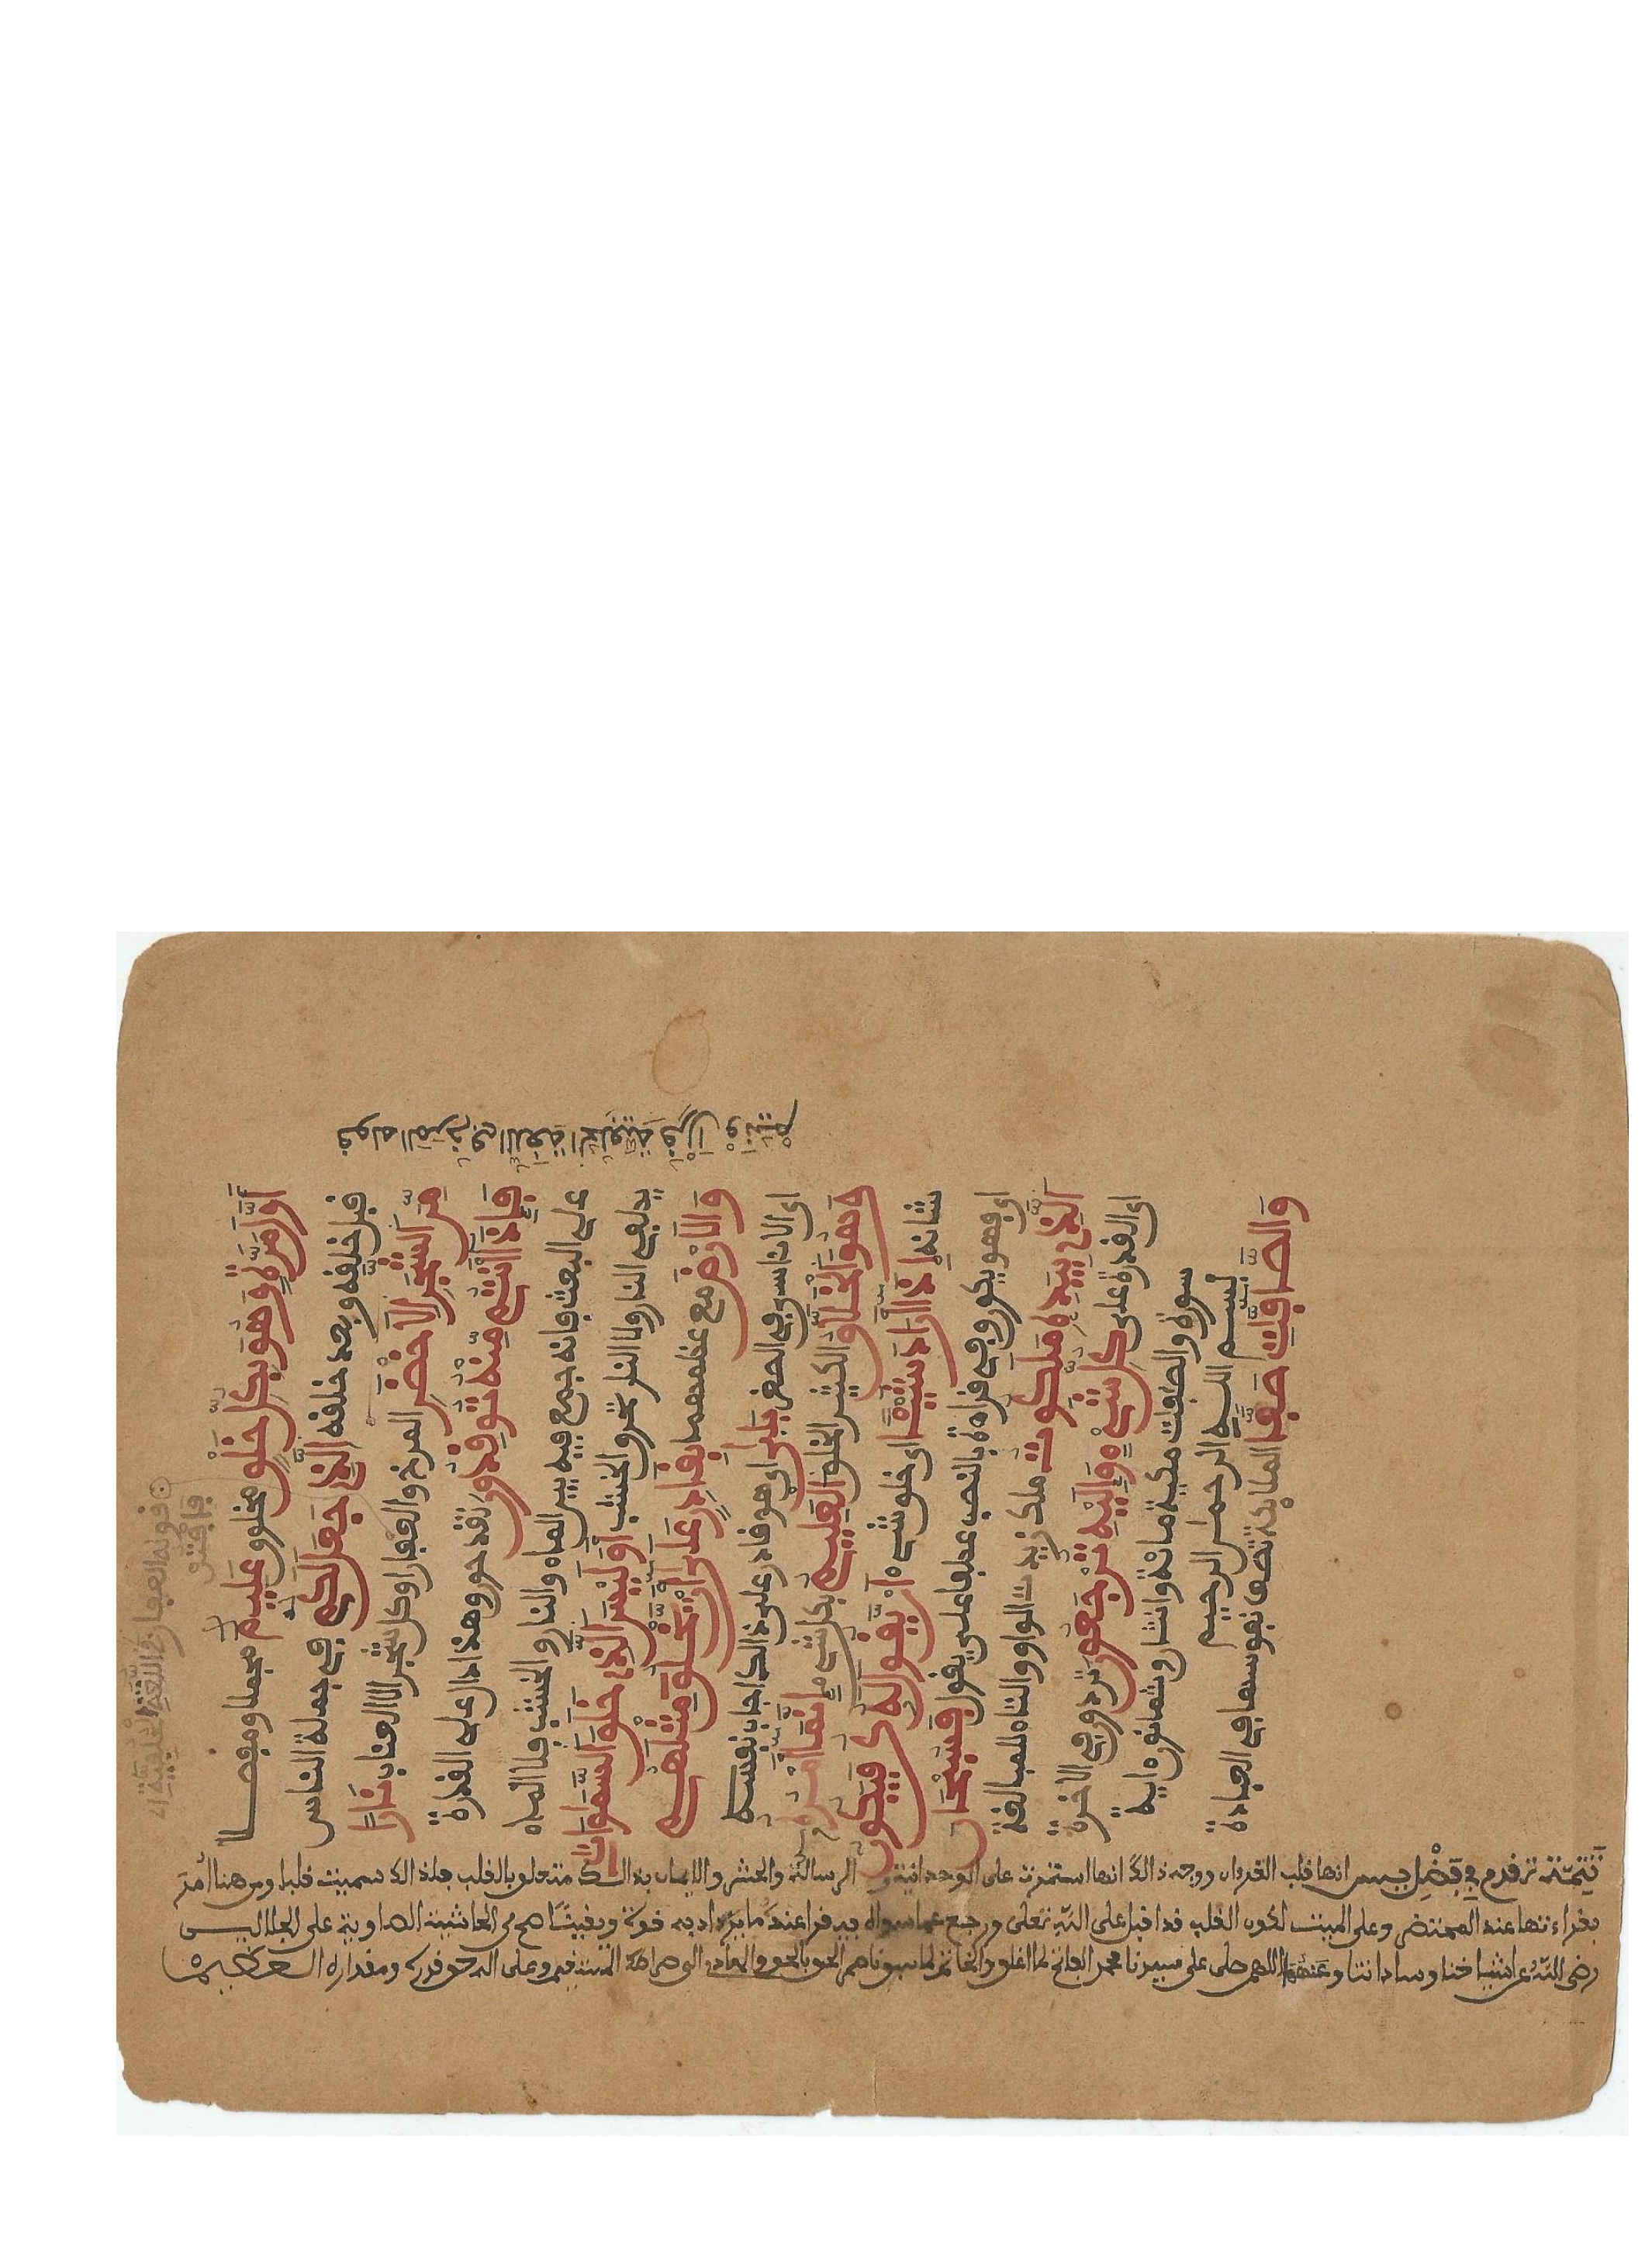 أول مرة وهو بكل خلق مخلوق عليم مجملا ومفصلا
قبل خلقه وبعد خلقه الذي جعل لكم في جملة الناس
من الشجر الأخضر المرخ والعفار أو كل شجر إلا العناب نارا
فإذا أنتم منه توقدون تقدحون وهذا دال على القدرة
على البعث فإنه جمع فيه بين الماء والنار والخشب فلا الماء
يطفى النار ولا النار تحرق الخشب أوليس الذي خلق السموات
والأرض مع عظمهما بقادر على أن يخلق مثلهم
أي الأناسي في الصغر بلى أي هو قادر على ذلك أجاب نفسه
وهو الخلق الكثير الخلق العليم بكل شيء إنما أمره
شأنه إذا أراد شيئا أي خلق شيء أن يقول له كن فيكون
أي فهو يكون وفي قراءة بالنصب عطفا على يقول فسبحان
الذي بيده ملكوت ملك زيدت الواو والتاء للمبالغة
أي القدرة على كل شيء وإليه ترجعون تردون في الآخرة
سورة والصفت مكية مائة واثنتان وثمانون ءاية
بسم الله الرحمن الرحيم
والصافت صفا الملائكة تصف نفوسها في العبادة
قوله المرخ في اللغة
قوله العفار في اللغة
تتمة تقدم في فضل يس انها قلب القرءان ووجه ذالك انها اشتملت على الوحدانية و الرسالة والحشر والايمان بذالك متعلق بالقلب فلذالك سميت قلبا ومن هنا أمر
بقراءتها عند المحتضر وعلى الميت لكون القلب قد اقبل على الله تعلى ورجع عما سواه فيقرا عنده ما يزداد به قوة ويقينا اهـ من الحاشية الصاوية على الجلالين
رضي الله عن اشياخنا وساداتنا وعنهم اللهم صلى على سيدنا محمد الفاتح لما اغلق والخاتم لما سبق ناصر الحق بالحق والهادي الى صراطك المستقيم وعلى اله حق قدره ومقداره العظيم